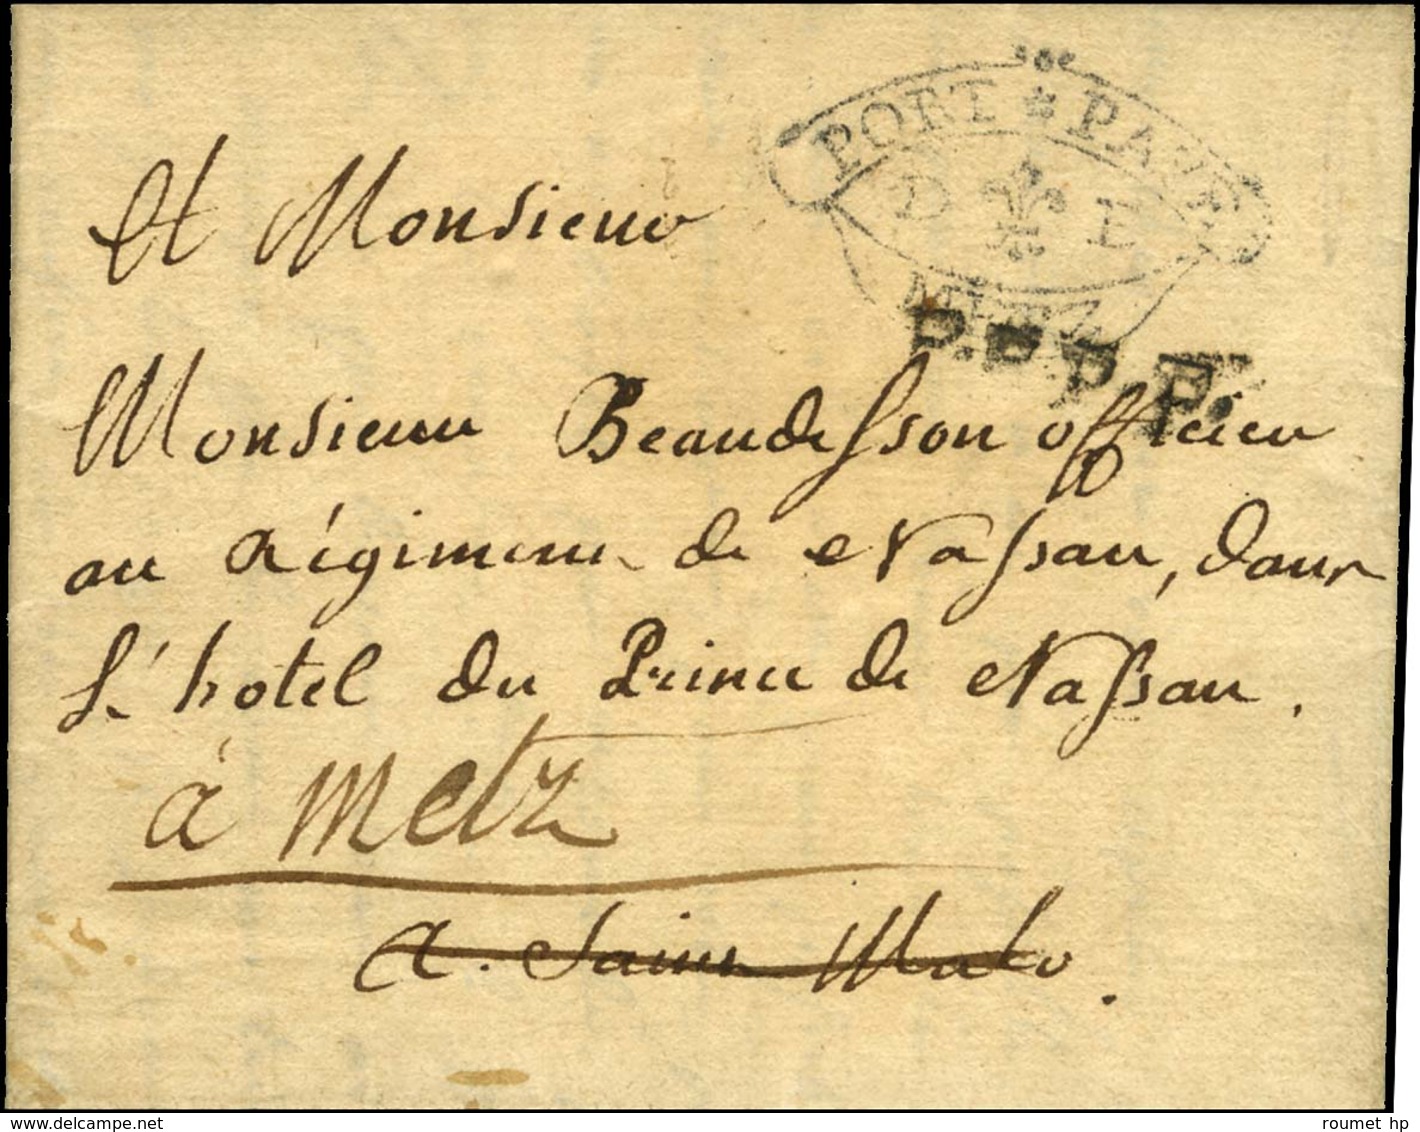 PORT PAYÉ
D E
METZ
P.P.P.P.
A Monsieur
Monsieur Beaudesson officier
au Régiment de Nassau, dans
L'hotel du Prince de Nassau.
à Metz
A. Saint Malo.
roumet hp